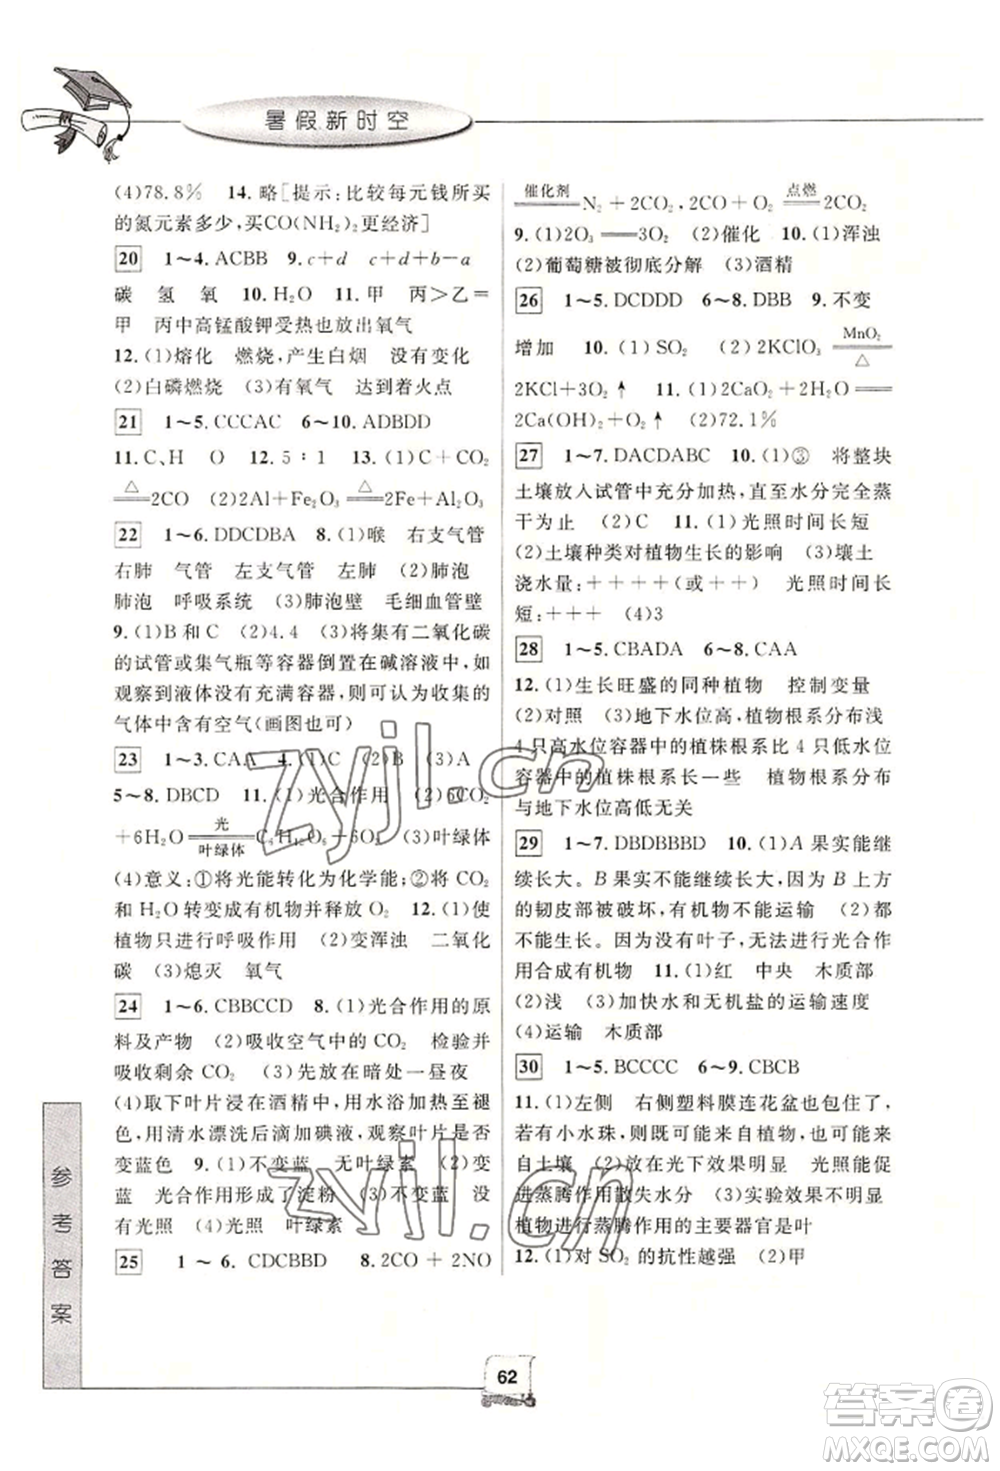 暑假新时空
(4)78.8% 14.略[提示:比较每元钱所买
的氮元素多少,买CO(NH₂)₂更经济]
20 1~4.ACBB 9.c+d c+d+b-a
碳 氢 氧 10.H₂O 11.甲 丙>乙=
甲 丙中高锰酸钾受热也放出氧气
12.(1)熔化 燃烧,产生白烟 没有变化
(2)白磷燃烧 (3)有氧气 达到着火点
21 1~5.CCCAC 6~10.ADBDD
11.C、H O 12.5∶1 13.(1)C+CO₂
△
══2CO (2)2Al+Fe₂O₃══2Fe+Al₂O₃
△
22 1~6.DDCDBA 8.(1)喉 右支气管
右肺 气管 左支气管 左肺 (2)肺泡
肺泡 呼吸系统 (3)肺泡壁 毛细血管壁
9.(1)B和C (2)4.4 (3)将集有二氧化碳
的试管或集气瓶等容器倒置在碱溶液中,如
观察到液体没有充满容器,则可认为收集的
气体中含有空气(画图也可)
23 1~3.CAA 4.(1)C (2)B (3)A
5~8.DBCD 11.(1)光合作用 (2)6CO₂
光
+6H₂O══C₆H₁₂O₆+6O₂ (3)叶绿体
叶绿体
(4)意义:①将光能转化为化学能;②将CO₂
和H₂O转变成有机物并释放O₂ 12.(1)使
植物只进行呼吸作用 (2)变浑浊 二氧化
碳 (3)熄灭 氧气
24 1~6.CBBCCD 8.(1)光合作用的原
料及产物 (2)吸收空气中的CO₂ 检验并
吸收剩余CO₂ (3)先放在暗处一昼夜
(4)取下叶片浸在酒精中,用水浴加热至褪
色,用清水漂洗后滴加碘液,观察叶片是否
变蓝色 9.(1)不变蓝 无叶绿素 (2)变
蓝 光合作用形成了淀粉 (3)不变蓝 没
有光照 (4)光照 叶绿素
25 1~6.CDCBBD 8.2CO+2NO
催化剂
══N₂+2CO₂,2CO+O₂══2CO₂
点燃
9.(1)2O₃══3O₂ (2)催化 10.(1)浑浊
(2)葡萄糖被彻底分解 (3)酒精
26 1~5.DCDDD 6~8.DBB 9.不变
增加 10.(1)SO₂ (2)2KClO₃══
MnO₂
△
2KCl+3O₂↑ 11.(1)2CaO₂+2H₂O══
2Ca(OH)₂+O₂↑ (2)72.1%
27 1~7.DACDABC 10.(1)③ 将整块
土壤放入试管中充分加热,直至水分完全蒸
干为止 (2)C 11.(1)光照时间长短
(2)土壤种类对植物生长的影响 (3)壤土
浇水量:++++(或++) 光照时间长
短:+++ (4)3
28 1~5.CBADA 6~8.CAA
12.(1)生长旺盛的同种植物 控制变量
(2)对照 (3)地下水位高,植物根系分布浅
4只高水位容器中的植株根系比4只低水位
容器中的植株根系长一些 植物根系分布
与地下水位高低无关
29 1~7.DBDBBBD 10.(1)A果实能继
续长大。B果实不能继续长大,因为B上方
的韧皮部被破坏,有机物不能运输 (2)都
不能生长。因为没有叶子,无法进行光合作
用合成有机物 11.(1)红 中央 木质部
(2)浅 (3)加快水和无机盐的运输速度
(4)运输 木质部
30 1~5.BCCCC 6~9.CBCB
11.(1)左侧 右侧塑料膜连花盆也包住了,
若有小水珠,则可能来自植物,也可能来自
来自土壤 (2)放在光下效果明显
进蒸腾作用散失水分 (3)增加一组实验
植物进行蒸腾作用的主要器官是叶
12.(1)对SO₂的抗性越强 (2)甲
参考答案
62
zyjl.cn
zyjl.cn
答案圈
MXQE.COM